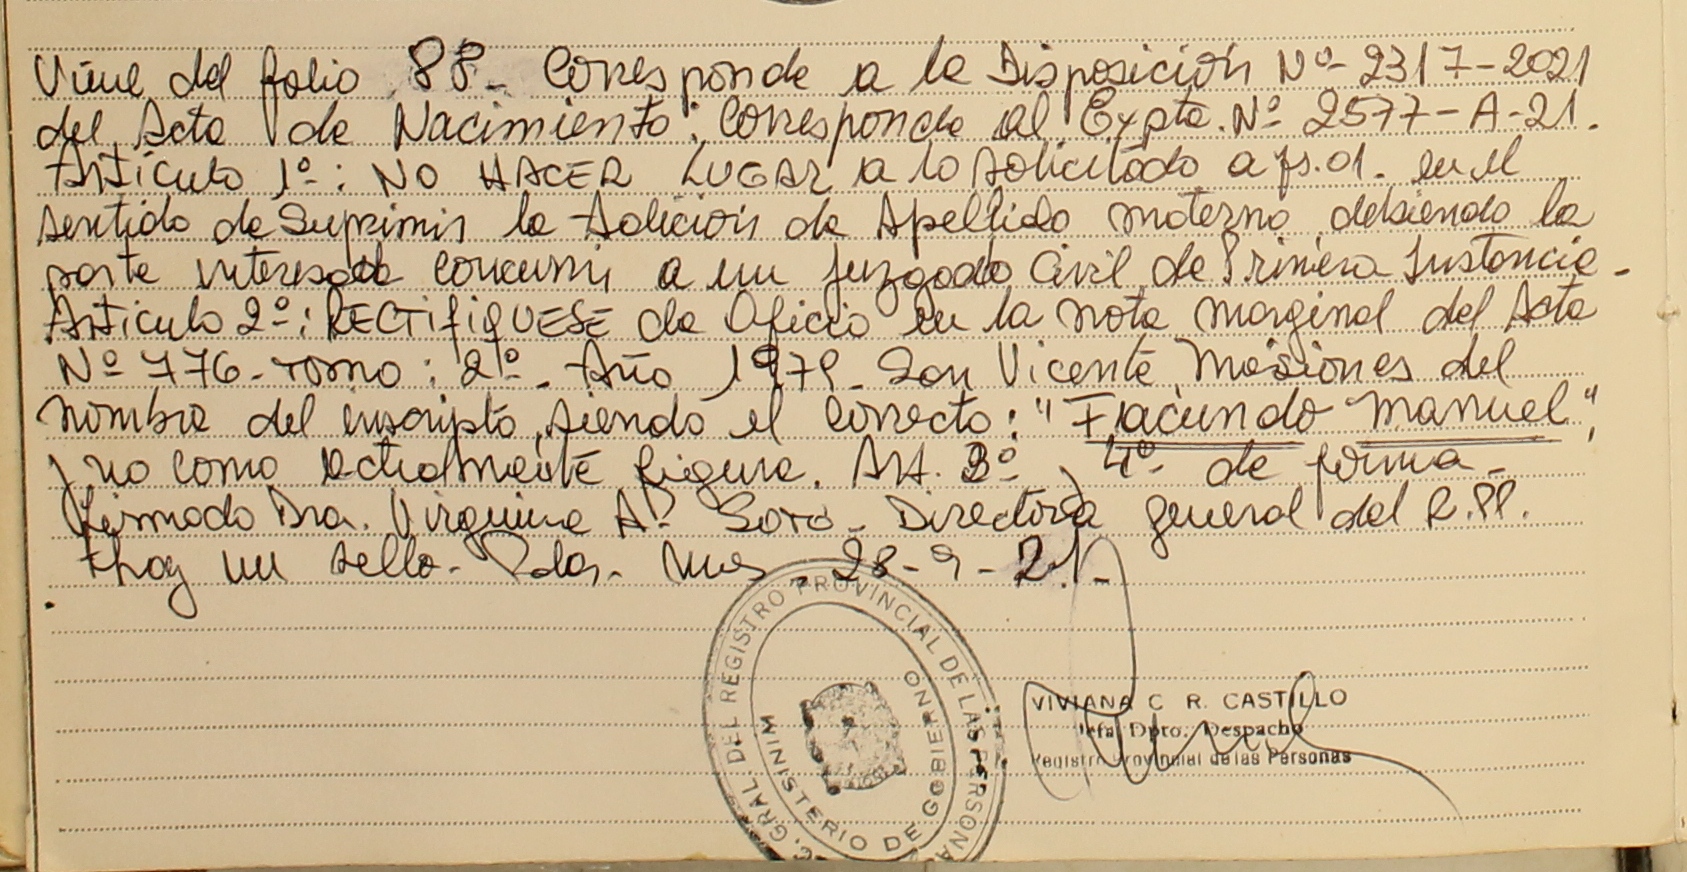 Viene del folio 88_ Corresponde a la Disposición Nº- 2317-2021
del Acta de Nacimiento: Corresponde al Expte. Nº 2577-A-21.
Artículo 1º: NO HACER LUGAR a lo solicitado a fs.01. en el
sentido de Suprimir la Adición de Apellido materno debiendo la
parte interesada concurrir a un juzgado Civil de Primera Instancia-
Artículo 2º: RECTIFIQUESE de Oficio en la nota marginal del Acta
Nº 776-Tomo: 2º_ Año 1979_ San Vicente Misiones del
nombre del inscripto, siendo el correcto: "Facundo Manuel",
y no como actualmente figura. Art. 3º y 4º- de forma-
Firmado Dra. Virginia Aº Soto_ Directora general del R.PP.
Hay un sello- Pdas. Mnes_ 28-9-21_
DEL REGISTRO PROVINCIAL DE LAS PERSONA
MINISTERIO DE GOBIERNO
VIVIANA C R. CASTILLO
Jefa Dpto. Despacho
Registro Provincial de las Personas